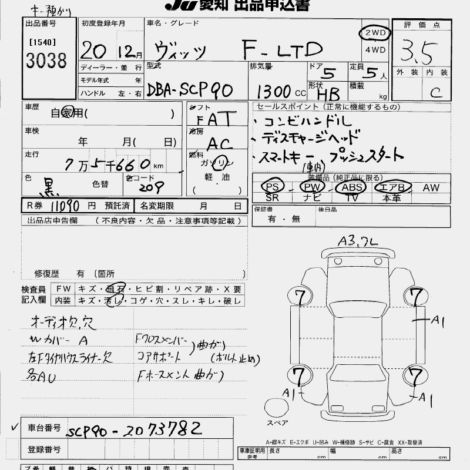 JU愛知 出品申込書
出品番号 初度登録年月 車名・グレード 2WD 評価点
[1540] 20年12月 ヴィッツ F-LTD 4WD 3.5
3038 ディーラー・並行 型式 排気量 ドア 定員 外装 内装
モデル年式 DBA-SCP90 1300CC 5 5名 C
ハンドル 左・右 形状 HB 積載 kg
車歴 自家用( ) シフト FAT セールスポイント(正常に機能するもの)
車検 年 月( ) 冷房 AC ・コンビハンドル
走行 7万5千660km 燃料 ガソリン ・ディスチャージヘッド
軽油 ・スマートキー プッシュスタート
色 黒 色替 カラーコード 209 装備品(純正品に限る)
PS PW ABS エアB AW
R券 11090円 預託済 名変期限 月 日 SR ナビ TV 本革
出品店申告欄 (不良内容・欠品・注意事項など記載) 保証書 有・無 後日品
修復歴 有( )箇所
検査員記入欄 FW キズ・飛石・ヒビ割・リペア跡・X要
内装 キズ・汚レ・コゲ・穴・スレ・キレ・破レ
A3,フL
7 7
7 7
A1
A1
オーディオ欠.穴
Wカバー A Fクロスメンバー 曲がり
コアサポート (ボルト止め)
各AU
スペア
A=線キズ E=エクボ U=凹み W=補修跡 S=サビ C=腐食 XX=取替済
車台番号 SCP90-2073782
登録番号